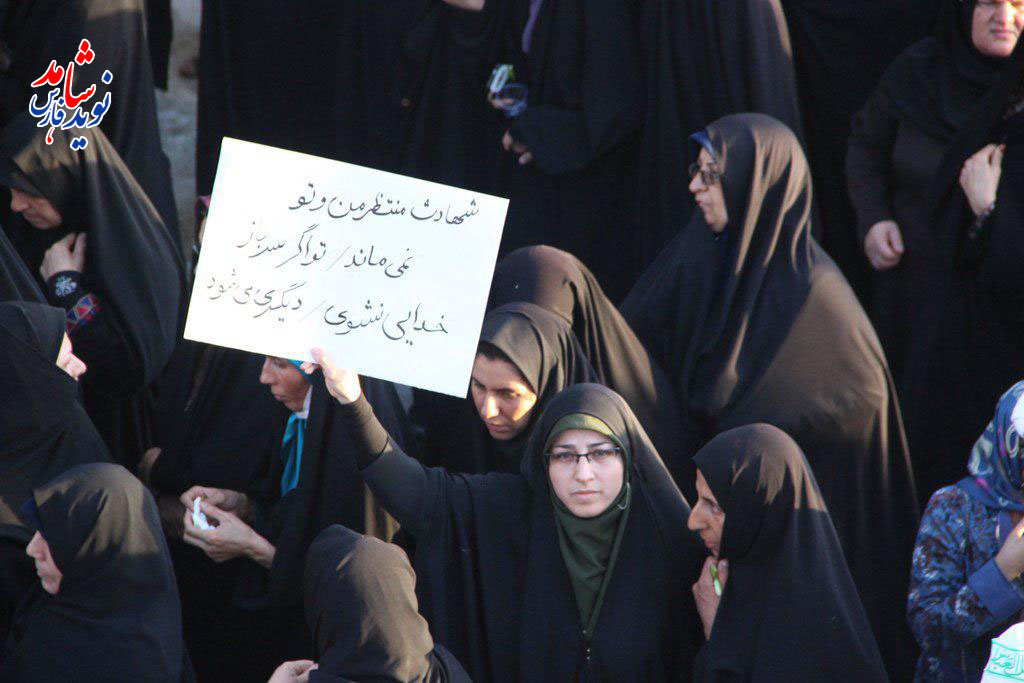 نوید شاهد
فارس
شهادت منتظر من و تو
نمی ماند / تو اگر سرباز
خدایی نشوی / دیگری می شود